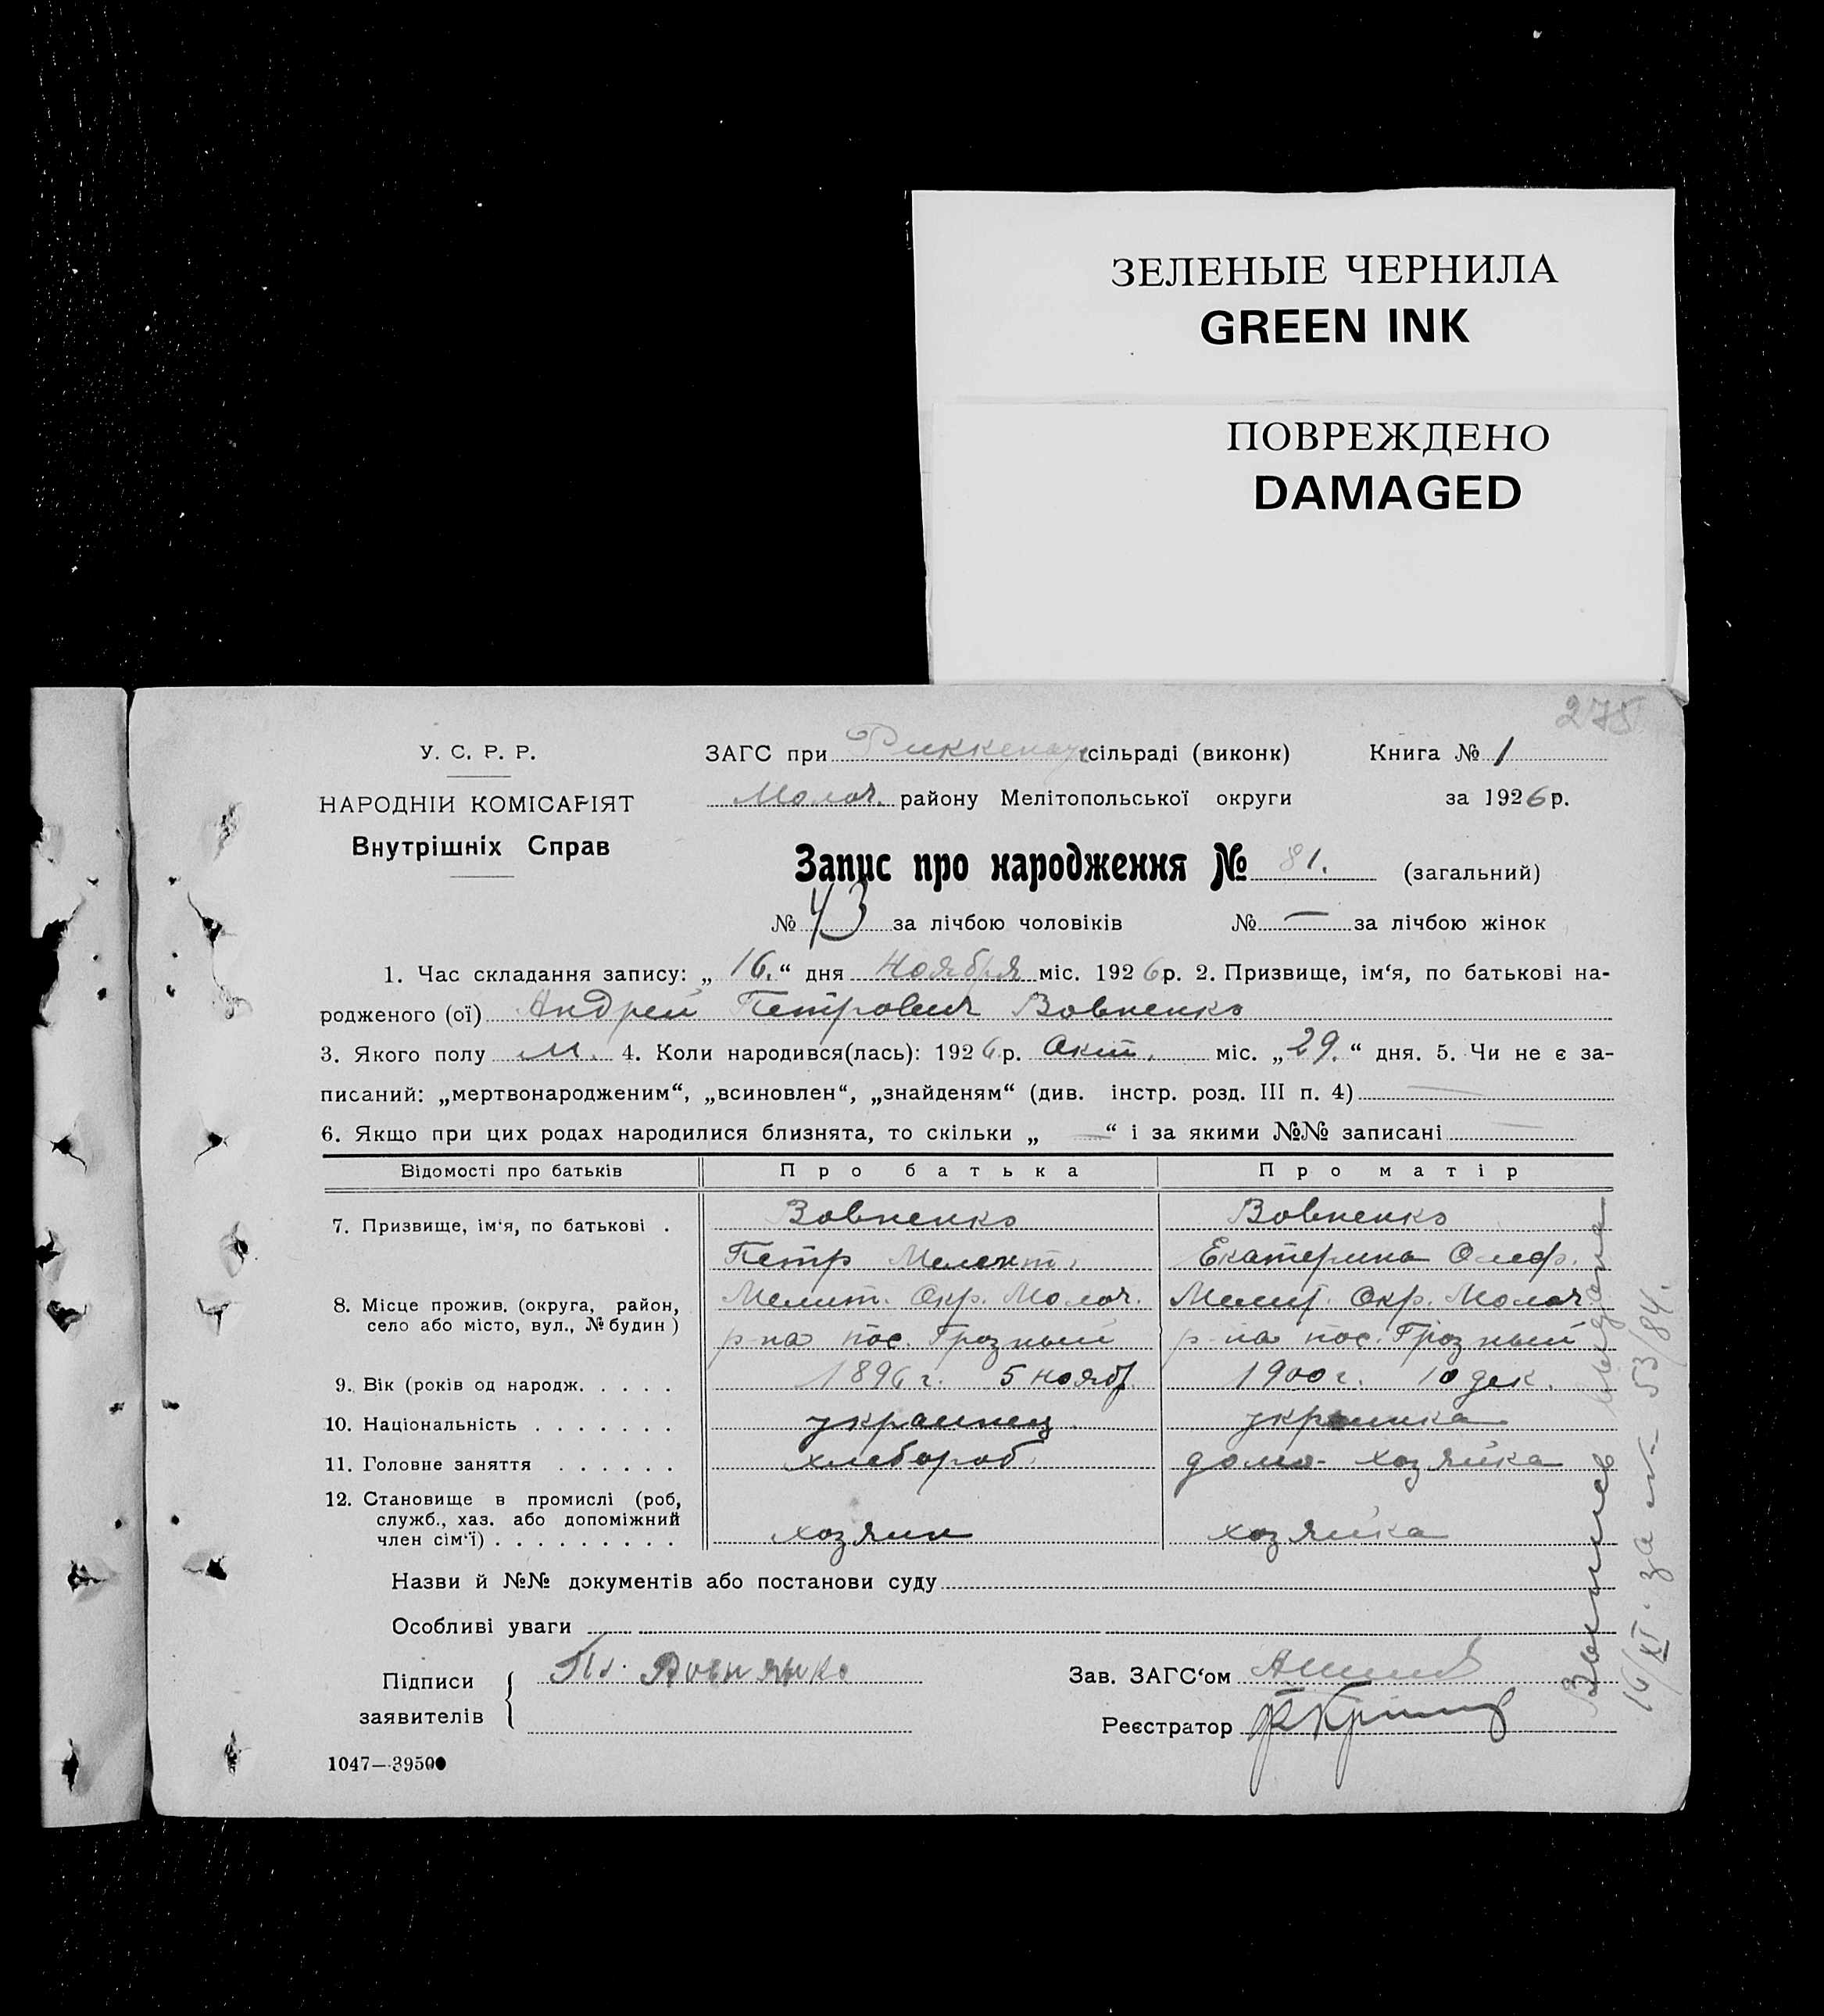 ЗЕЛЕНЫЕ ЧЕРНИЛА
GREEN INK
ПОВРЕЖДЕНО
DAMAGED
275
У. С. Р. Р.
НАРОДНІЙ КОМІСАРІЯТ
Внутрішніх Справ
ЗАГС при Риккенау сільраді (виконк) Книга № 1
Молоч. району Мелітопольської округи за 1926 р.
Запис про народження № 81. (загальний)
№ 43 за лічбою чоловіків № — за лічбою жінок
1. Час складання запису: „16.“ дня Ноября міс. 1926 р. 2. Призвище, ім‘я, по батькові на-
родженого (ої) Андрей Петрович Вовненко
3. Якого полу м. 4. Коли народився(лась): 1926 р. Окт. міс. „29.“ дня. 5. Чи не є за-
писаний: „мертвонародженим“, „всиновлен“, „знайденям“ (див. інстр. розд. III п. 4) —
6. Якщо при цих родах народилися близнята, то скільки „ — “ і за якими №№ записані —
Відомості про батьків Про батька Про матір
7. Призвище, ім‘я, по батькові . Вовненко Вовненко
Петр Мелент. Екатерина Олеф.
8. Місце прожив. (округа, район, Мелит. Окр. Молоч. Мелит. Окр. Молоч.
село або місто, вул., № будин) р-на пос. Грозный р-на пос. Грозный
9. Вік (років од народж. . . . . 1896 г. 5 нояб. 1900 г. 10 дек.
10. Національність . . . . . . . украинец украинка
11. Головне заняття . . . . . . хлебороб. домо-хозяйка
12. Становище в промислі (роб,
служб., хаз. або допоміжний
член сім‘ї) . . . . . . . . . хозяин хозяйка
Назви й №№ документів або постанови суду
Особливі уваги
Підписи
заявителів
Зав. ЗАГС‘ом
Реєстратор
1047—39500
Выпись выдана
16/XI. за № 53/84.